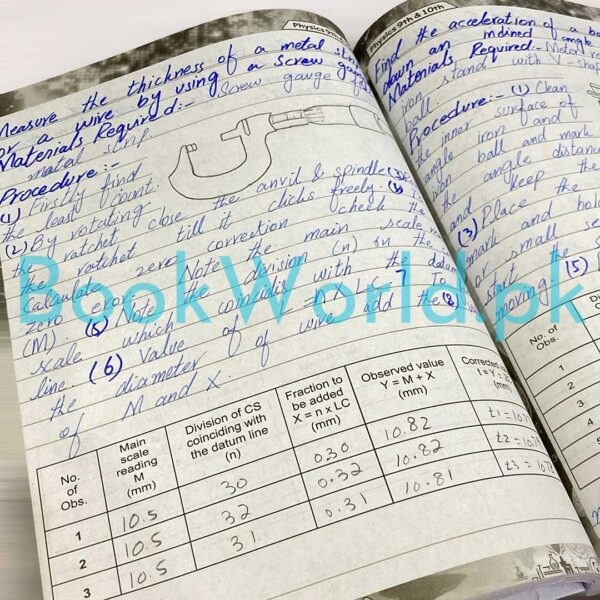 Physics 9th
Measure the thickness of a metal strip
or a wire by using a screw gauge
Materials Required:- Screw gauge
metal strip
Procedure:-
(1) Firstly find
the least count.
(2) By rotating
the ratchet close the anvil & spindle (3)
the ratchet till it clicks freely (4)
Calculate zero correction check the
zero eror. Note the main scale
(M). (5) Note the division (n) on the
scale which coincides with the datum
line. (6) Value of = n x L.C 7 To
the diameter of wire add the (8)
of M and X
No. of Obs.
Main scale reading M (mm)
Division of CS coinciding with the datum line (n)
Fraction to be added X = n x LC (mm)
Observed value Y = M + X (mm)
Corrected
t = Y
1 10.5 30 0.30 10.82
2 10.5 32 0.32 10.82
3 10.5 31 0.31 10.81
Physics 9th & 10th
Find the acceleration of a
down an inclined angle
Materials Required:- Metal
iron stand with V-
ball.
Procedure:- (1) Clean
the inner surface of
angle iron and
iron ball and mark
the angle distance
and keep the
(3) Place the
mark and
or small
start the
moving. (5)
No. of Obs.
1
2
3
4
BookWorld.pk